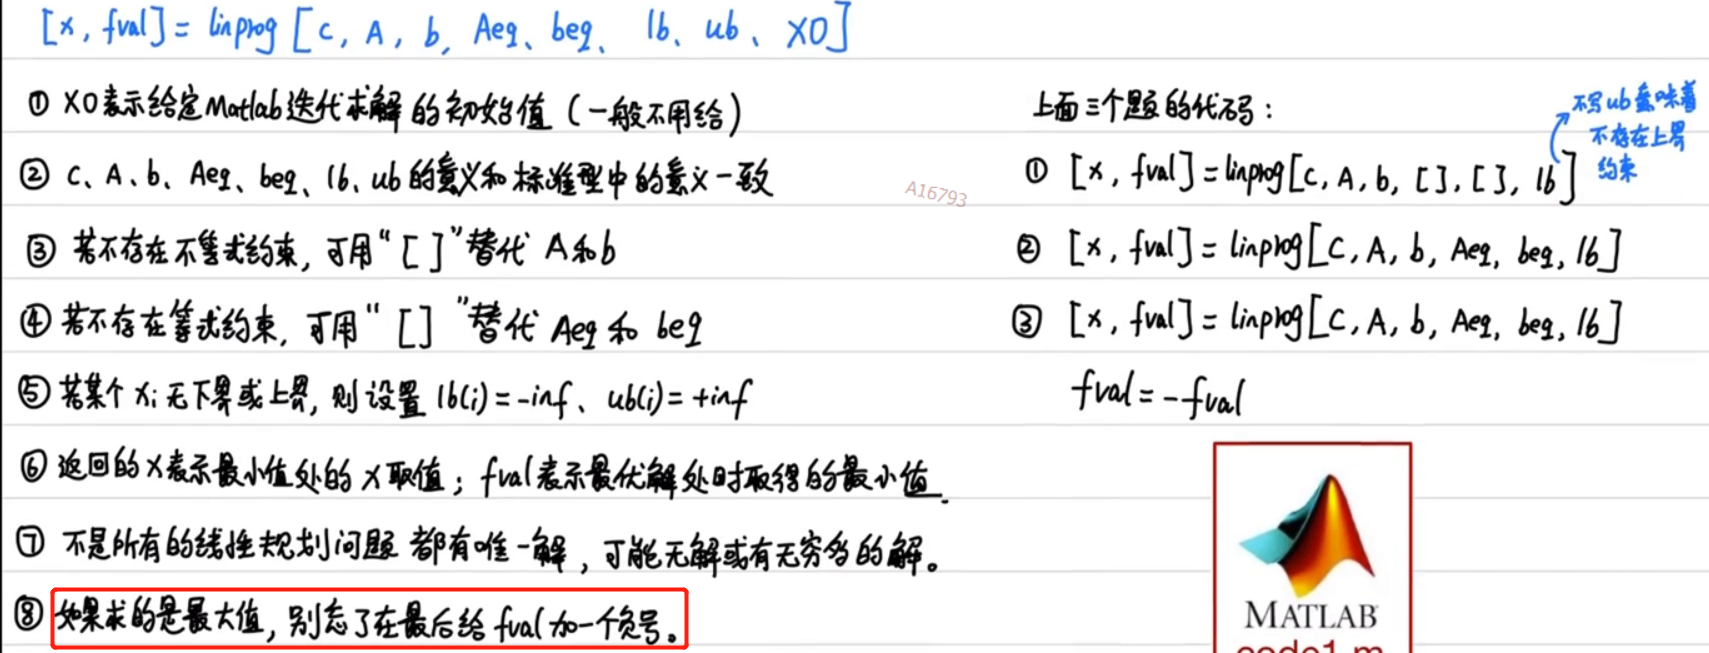 [x, fval] = linprog [c, A, b, Aeq、beq、lb、ub、X0]
① X0表示给定Matlab迭代求解的初始值（一般不用给）
② c、A、b、Aeq、beq、lb、ub的意义和标准型中的意义一致
③ 若不存在不等式约束, 可用“[ ]”替代 A和b
④ 若不存在等式约束, 可用“[]”替代 Aeq 和 beq
⑤ 若某个 xi 无下界或上界, 则设置 lb(i)=-inf、ub(i)=+inf
⑥ 返回的x表示最小值处的x取值；fval表示最优解处时取得的最小值.
⑦ 不是所有的线性规划问题都有唯一解，可能无解或有无穷多的解。
⑧ 如果求的是最大值, 别忘了在最后给fval加一个负号。
A16793
上面三个题的代码：
不写ub意味着
不存在上界
约束
① [x, fval]=linprog[c, A, b, [], [], lb]
② [x, fval]=linprog[C, A, b, Aeq, beq, lb]
③ [x, fval]=linprog[C, A, b, Aeq, beq, lb]
fval=-fval
MATLAB
code1.m